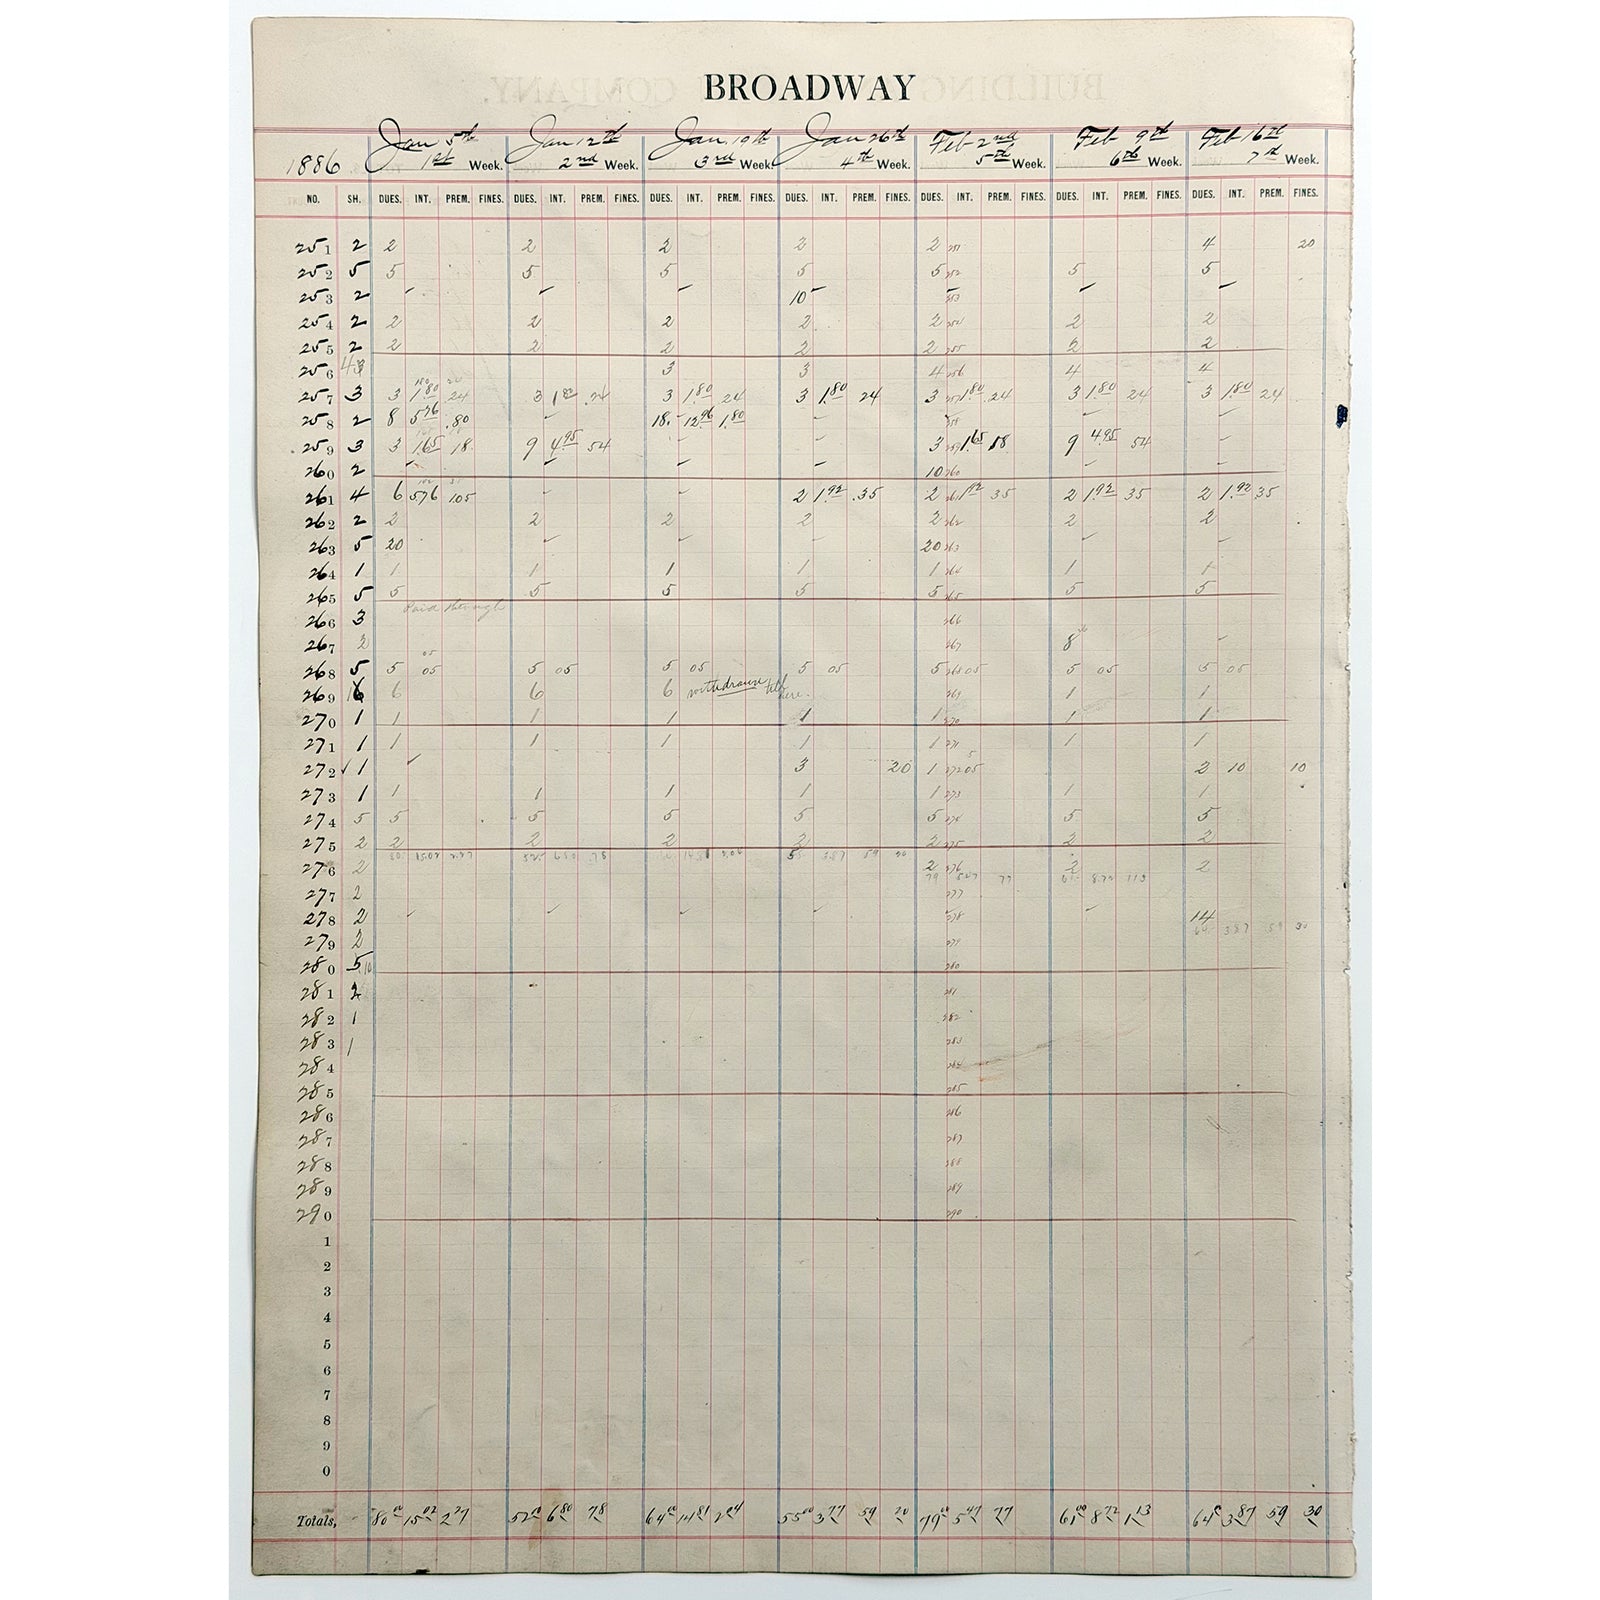 BROADWAY
Jan 5th Jan 12th Jan. 19th Jan 26th Feb 2nd Feb 9th Feb 16th
1886 1st Week. 2nd Week. 3rd Week. 4th Week. 5th Week. 6th Week. 7th Week.
NO. SH. DUES. INT. PREM. FINES. DUES. INT. PREM. FINES. DUES. INT. PREM. FINES. DUES. INT. PREM. FINES. DUES. INT. PREM. FINES. DUES. INT. PREM. FINES. DUES. INT. PREM. FINES.
251 2 2 2 2 2 2 251 4 20
252 5 5 5 5 5 5 252 5 5
253 2 10 253
254 2 2 2 2 2 2 254 2 2
255 2 2 2 2 2 2 255 2 2
256 3 3 4 256 4 4
257 3 3 1.80 24 3 1.80 .24 3 1.80 24 3 1.80 24 3 257 1.80 .24 3 1.80 24 3 1.80 24
258 2 8 5.76 .80 18. 12.96 1.80 258
259 3 3 1.65 18 9 4.95 54 3 259 1.65 18 9 4.95 54
260 2 10 260
261 4 6 5.76 1.05 2 1.92 .35 2 261 1.92 35 2 1.92 35 2 1.92 .35
262 2 2 2 2 2 2 262 2 2
263 5 20 20 263
264 1 1 1 1 1 1 264 1 1
265 5 5 5 5 5 5 265 5 5
Paid through
266 3 266
267 2 267 8
268 5 5 05 5 05 5 05 5 05 5 268 05 5 05 5 05
269 6 6 6 withdrawn till here. 269 1 1
270 1 1 1 1 1 1 270 1 1
271 1 1 1 1 1 1 271 1 1
272 1 3 20 1 272 05 2 10 10
273 1 1 1 1 1 1 273 1 1
274 5 5 5 5 5 5 274 5 5
275 2 2 2 2 2 2 275 2 2
276 2 2 276 2 2
277 2 277
278 2 278 14
279 2 279
280 5 280
281 2 281
282 1 282
283 1 283
284 284
285 285
286 286
287 287
288 288
289 289
290 290
1
2
3
4
5
6
7
8
9
0
Totals, 80.00 15.02 2.27 52.00 6.80 .78 64.00 14.81 2.04 55.00 3.77 59 20 79.00 5.47 77 61.00 8.72 1.13 64 3.87 59 30